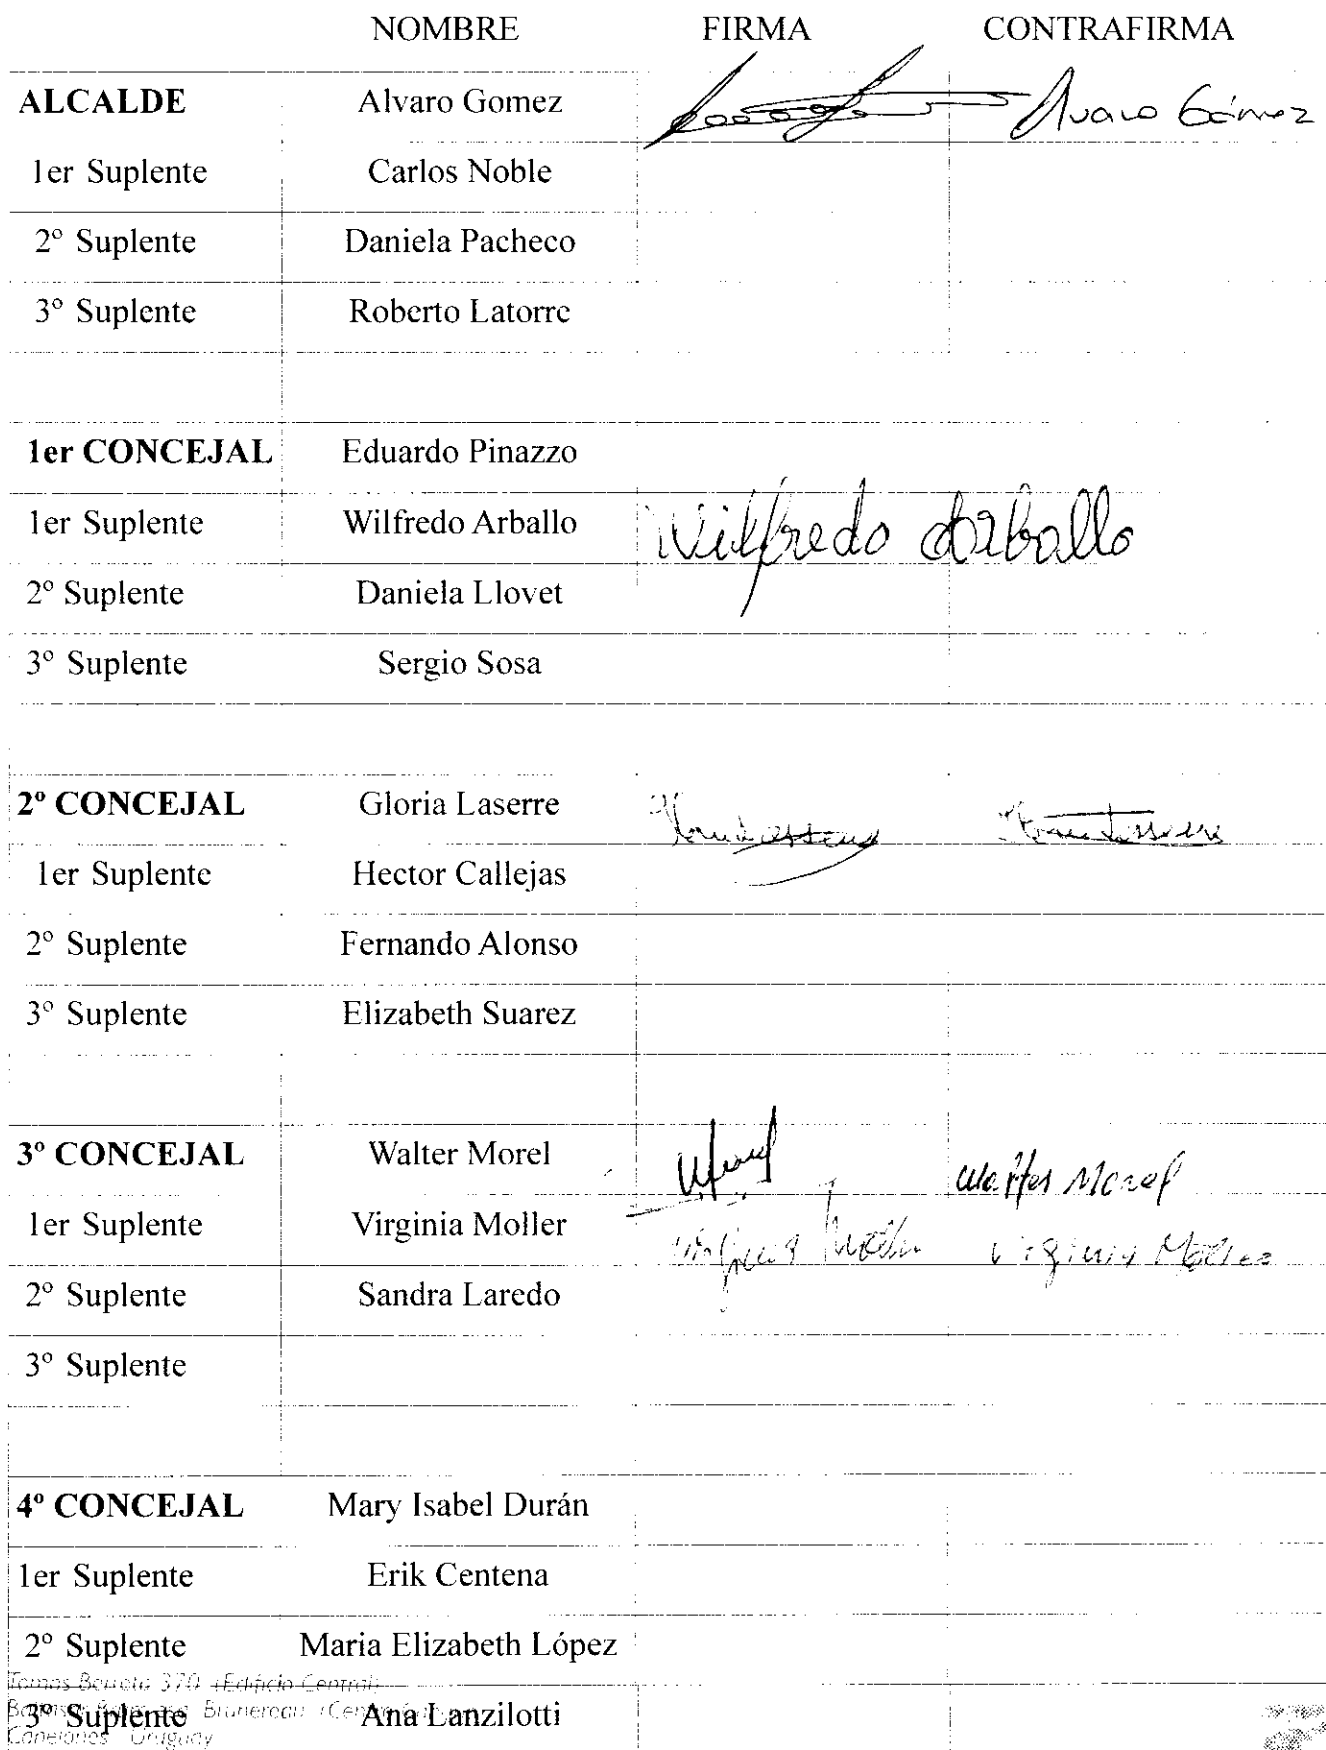 NOMBRE FIRMA CONTRAFIRMA
ALCALDE Alvaro Gomez Alvaro Gómez
1er Suplente Carlos Noble
2º Suplente Daniela Pacheco
3º Suplente Roberto Latorre
1er CONCEJAL Eduardo Pinazzo
1er Suplente Wilfredo Arballo Wilfredo Arballo
2º Suplente Daniela Llovet
3º Suplente Sergio Sosa
2º CONCEJAL Gloria Laserre
1er Suplente Hector Callejas
2º Suplente Fernando Alonso
3º Suplente Elizabeth Suarez
3º CONCEJAL Walter Morel Walter Morel
1er Suplente Virginia Moller Virginia Moller Virginia Moller
2º Suplente Sandra Laredo
3º Suplente
4º CONCEJAL Mary Isabel Durán
1er Suplente Erik Centena
2º Suplente Maria Elizabeth López
370 (Edificio Central)
3º Suplente Ana Lanzilotti
Canelones Uruguay